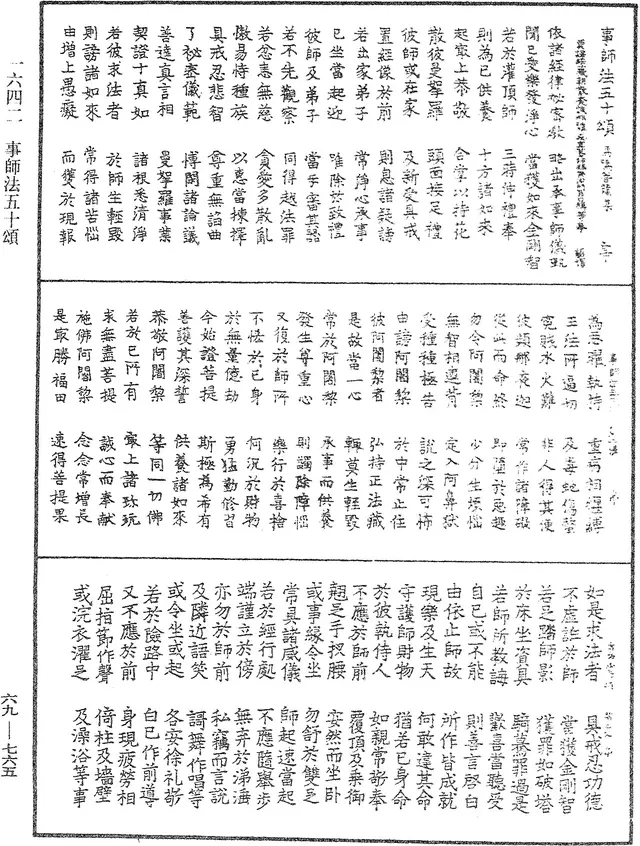 事師法五十頌 馬鳴菩薩集
依諸經律祕密教 略出承事師儀軌
聞已愛樂發淨心 當獲如來金剛智
若於灌頂師 三時伸禮奉
則為已供養 十方諸如來
起最上恭敬 合掌以持花
散彼曼拏羅 頭面接足禮
彼師或在家 及新受具戒
置經像於前 則息諸疑謗
若出家弟子 常淨心承事
已坐當起迎 唯除於致禮
彼師及弟子 當互審其器
若不先觀察 同得越法罪
若忿恚無慈 貪愛多散亂
傲易恃種族 以慧當揀擇
具戒忍悲智 尊重無諂曲
了祕密儀範 博閑諸論議
善達真言相 曼拏羅事業
契證十真如 諸根悉清淨
若彼求法者 於師生輕毀
則謗諸如來 常得諸苦惱
由增上愚癡 而獲於現報
為惡曜執持 重病相纏縛
王法所逼切 及毒蛇傷螫
冤賊水火難 非人得其便
彼頻那夜迦 常作諸障礙
從此而命終 即墮於惡趣
勿令阿闍棃 少分生煩惱
無智相違背 定入阿鼻獄
受種種極苦 說之深可怖
由謗阿闍棃 於中常止住
彼阿闍棃者 弘持正法藏
是故當一心 輒莫生輕毀
常於阿闍棃 承事而供養
發生尊重心 則蠲除障惱
又復於師所 樂行於喜捨
不悋於己身 何況於財物
於無量億劫 勇猛勤修習
今始證菩提 斯極為希有
善護其深誓 供養諸如來
恭敬阿闍棃 等同一切佛
若於己所有 最上諸珍玩
求無盡菩提 誠心而奉獻
施佛阿闍棃 念念常增長
是最勝福田 速得菩提果
如是求法者 具戒忍功德
不虛誑於師 當獲金剛智
若足蹈師影 獲罪如破塔
於床坐資具 騎驀罪過是
若師所教誨 歡喜當聽受
自己或不能 則善言啓白
由依止師故 所作皆成就
現樂及生天 何敢違其命
守護師財物 猶若己身命
於彼執侍人 如親常敬奉
不應於師前 覆頂及乘御
翹足手扠腰 安然而坐卧
或事緣令坐 勿舒於雙足
常具諸威儀 師起速當起
若於經行處 不應隨舉步
端謹立於傍 無弃於涕唾
亦勿於師前 私竊而言說
及隣近語笑 謌舞作唱等
或令坐或起 各安徐礼敬
若於險路中 白已作前導
又不應於前 身現疲勞相
屈指節作聲 倚柱及墻壁
或浣衣濯足 及澡浴等事
一六四二 事師法五十頌
六九—七六五